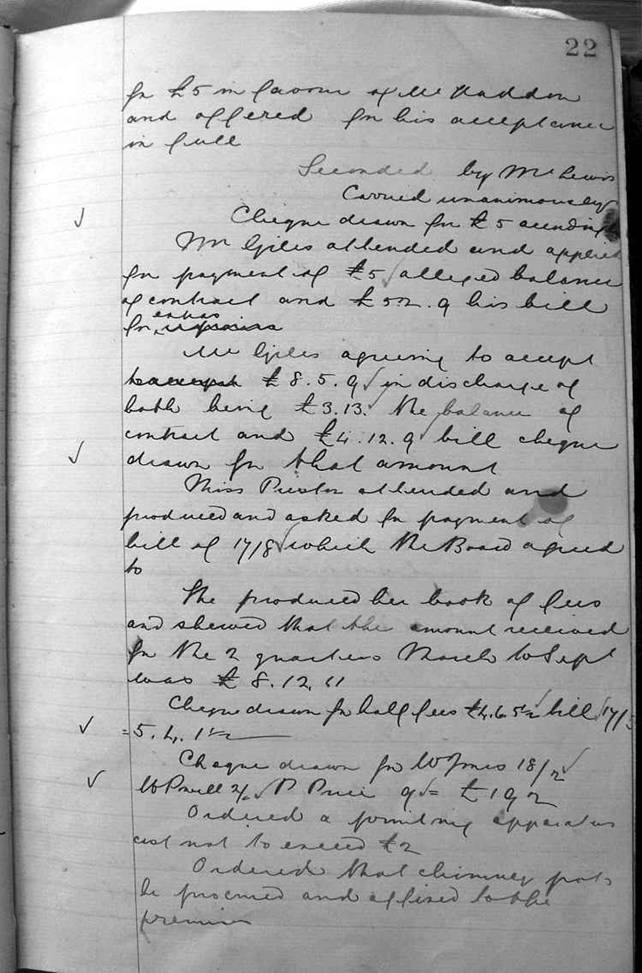 22
for £5 in favour of Mr Haddon
and offered for his acceptance
in full
Seconded by Mr Lewis
Carried unanimously
Cheque drawn for £5 accordingly
Mr Giles attended and applied
for payment of £5 alleged balance
of contract and £5 2. 9 his bill
extras
for repairs
Mr Giles agreeing to accept
to accept £8. 5. 9 in discharge of
both being £3. 13. the balance of
contract and £4. 12. 9 bill cheque
drawn for that amount
Miss Preston attended and
produced and asked for payment of
bill of 17/8 which the Board agreed
to
She produced her book of fees
and shewed that the amount received
for the 2 quarters March to Sept
was £ 8. 12. 11
Cheque drawn for half fees £4. 6 5½ bill 17/8
= 5. 4. 1½
Cheque drawn for W Jones 18/2
W Powell 2/ P Price 9 = £1 9 2
Ordered a pointing apparatus
cost not to exceed £2
Ordered that chimney pots
be procured and affixed to the
premises